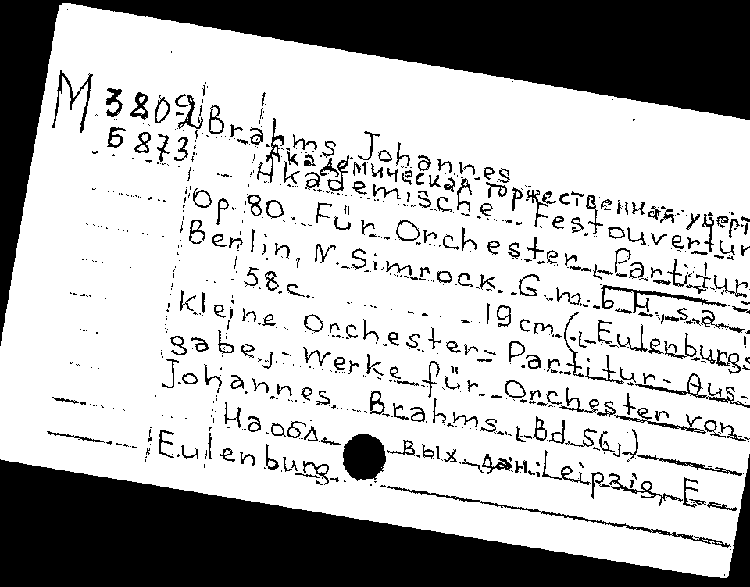 M 3809
5873
Brahms, Johannes
Академическая торжественная уверт
Akademische Festouvertur
Op. 80. Für Orchester. Partitur
Berlin, N. Simrock G.m.b.H., s.a.
58 c. 19 cm. (Eulenburgs
Kleine Orchester-Partitur-Aus-
gabe,- Werke für Orchester von
Johannes Brahms, Bd 56,)
На обл. вых. дан: Leipzig, E.
Eulenburg.